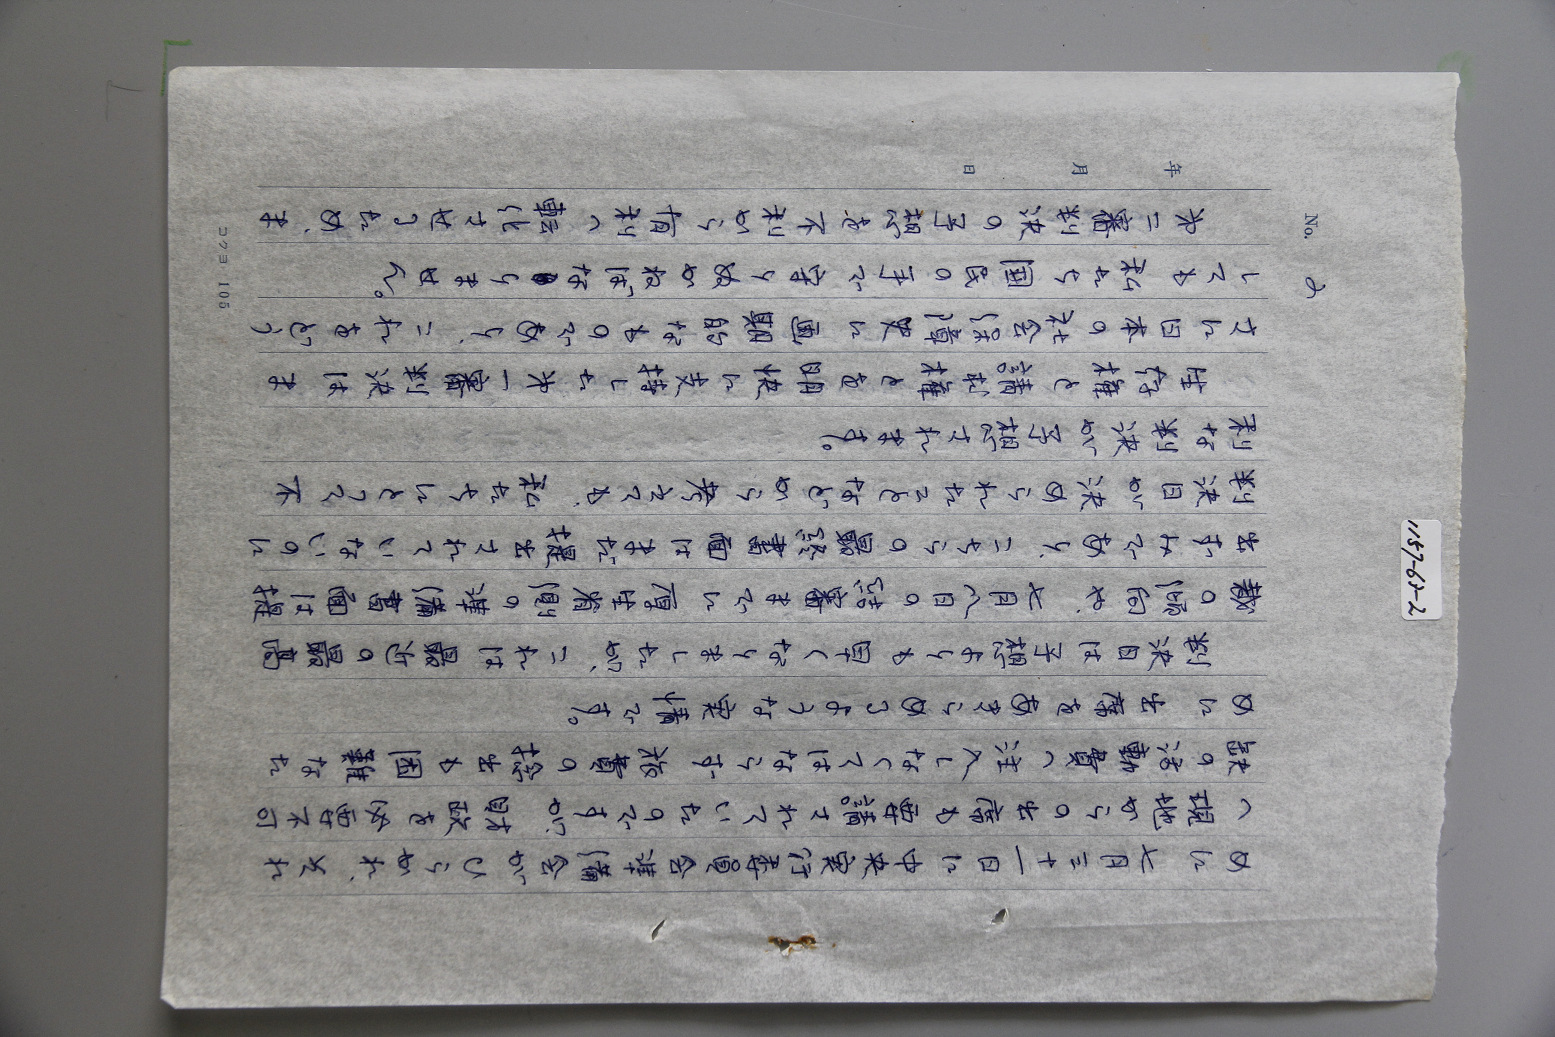 No. 2
めに七月三十一日に中央実行委員会準備会がひらかれ、それ
へ現地からの出席も要請されていたのですが、財政を必要不可
缺の活動費へ注入しなくてはならず旅費の捻出も困難なた
めに出席をあきらめるような実情です。
判決日は予想よりも早くなりましたが、これは最近の最高
裁の傾向や、七月八日の結審までに厚生省側の準備書面は提
出ずみであり、こちらの最終書面はまだ提出されていないのに
判決日が決められたことなどから考えても、私たちにとって不
利な判決が予想されます。
生存権と請求権とを明快に支持した才一審判決はま
さに日本の社会保障史に画期的なものであり、これをどう
しても私たち国民の手で守りぬかねばなりません。
才二審判決の予想を不利から有利へ転化させるため、ま
年 月 日
コクヨ 105
1157-63-2